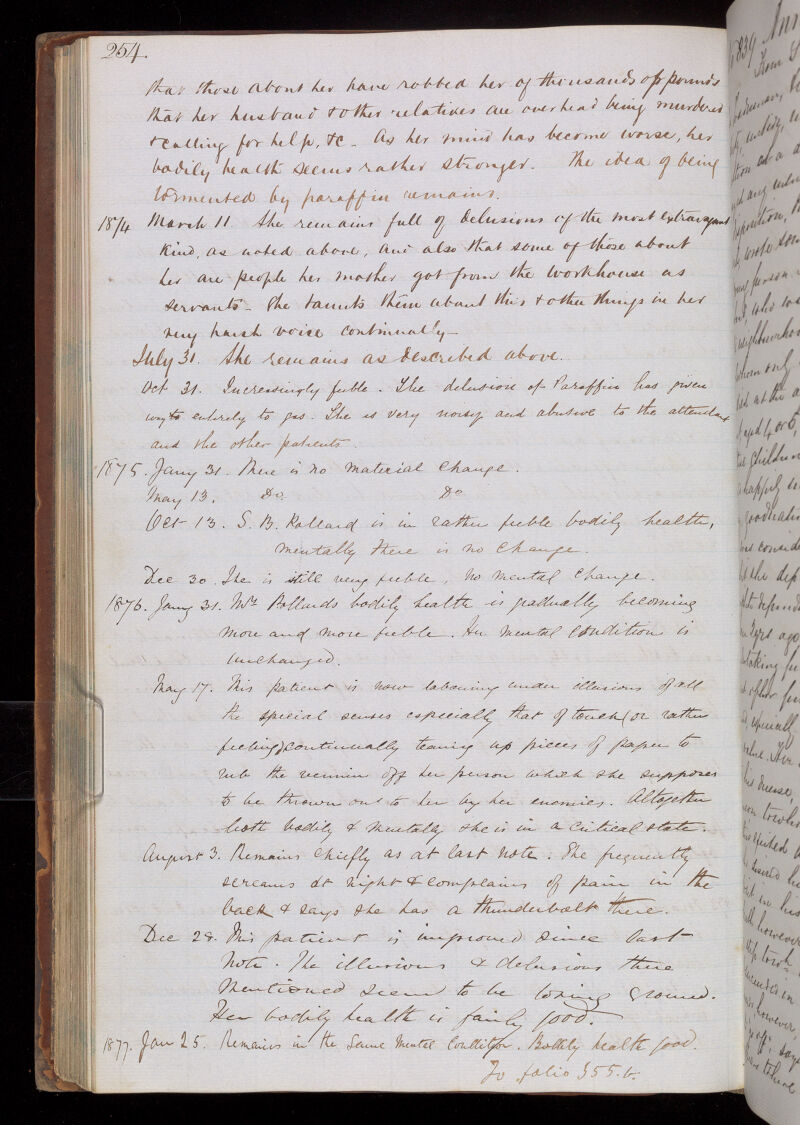 254.
that those about her have robbed her of thousands of pounds
that her husband & other relatives are overhead being murdered
& calling for help, &c - As her mind has become worse, her
bodily health seems rather stronger. The idea of being
tormented by paraffin remains.
1874 March 11. She remains full of delusions of the most extravagant
kind, as noted above, and also that some of those about
her are people her mother got from the workhouse as
servants - She taunts them about this & other things in her
very harsh voice continually -
July 31. She remains as described above.
Oct 31. Increasingly feeble. The delusion of Paraffin has given
way to entirely to gas. She is very noisy and abusive to the attendant
and the other patients.
1875. Jany 31. There is no material change.
May 13. Do Do
Oct 13. S. B. Pollard is in rather feeble bodily health,
mentally there is no change.
Dec 30. She is still very feeble, no mental change.
1876. Jany 31. Mrs Pollards bodily health is gradually becoming
more and more feeble. Her mental condition is
unchanged.
May 17. This patient is now labouring under illusions of all
the special senses especially that of touch (or rather
feeling) continually tearing up pieces of paper to
rub the vermin off her person which she supposes
to be thrown on to her by her enemies. Altogether
both bodily & mentally she is in a critical state.
August 3. Remains chiefly as at last note. She frequently
screams at night & complains of pain in the
back & says she has a thunderbolt there.
Dec 28. This patient is improved since last
note. The illusions & delusions there
mentioned seem to be losing ground.
Her bodily health is fairly good.
1877. Jan 25. Remains in the same mental condition. Bodily health good.
To folio 355.
1839